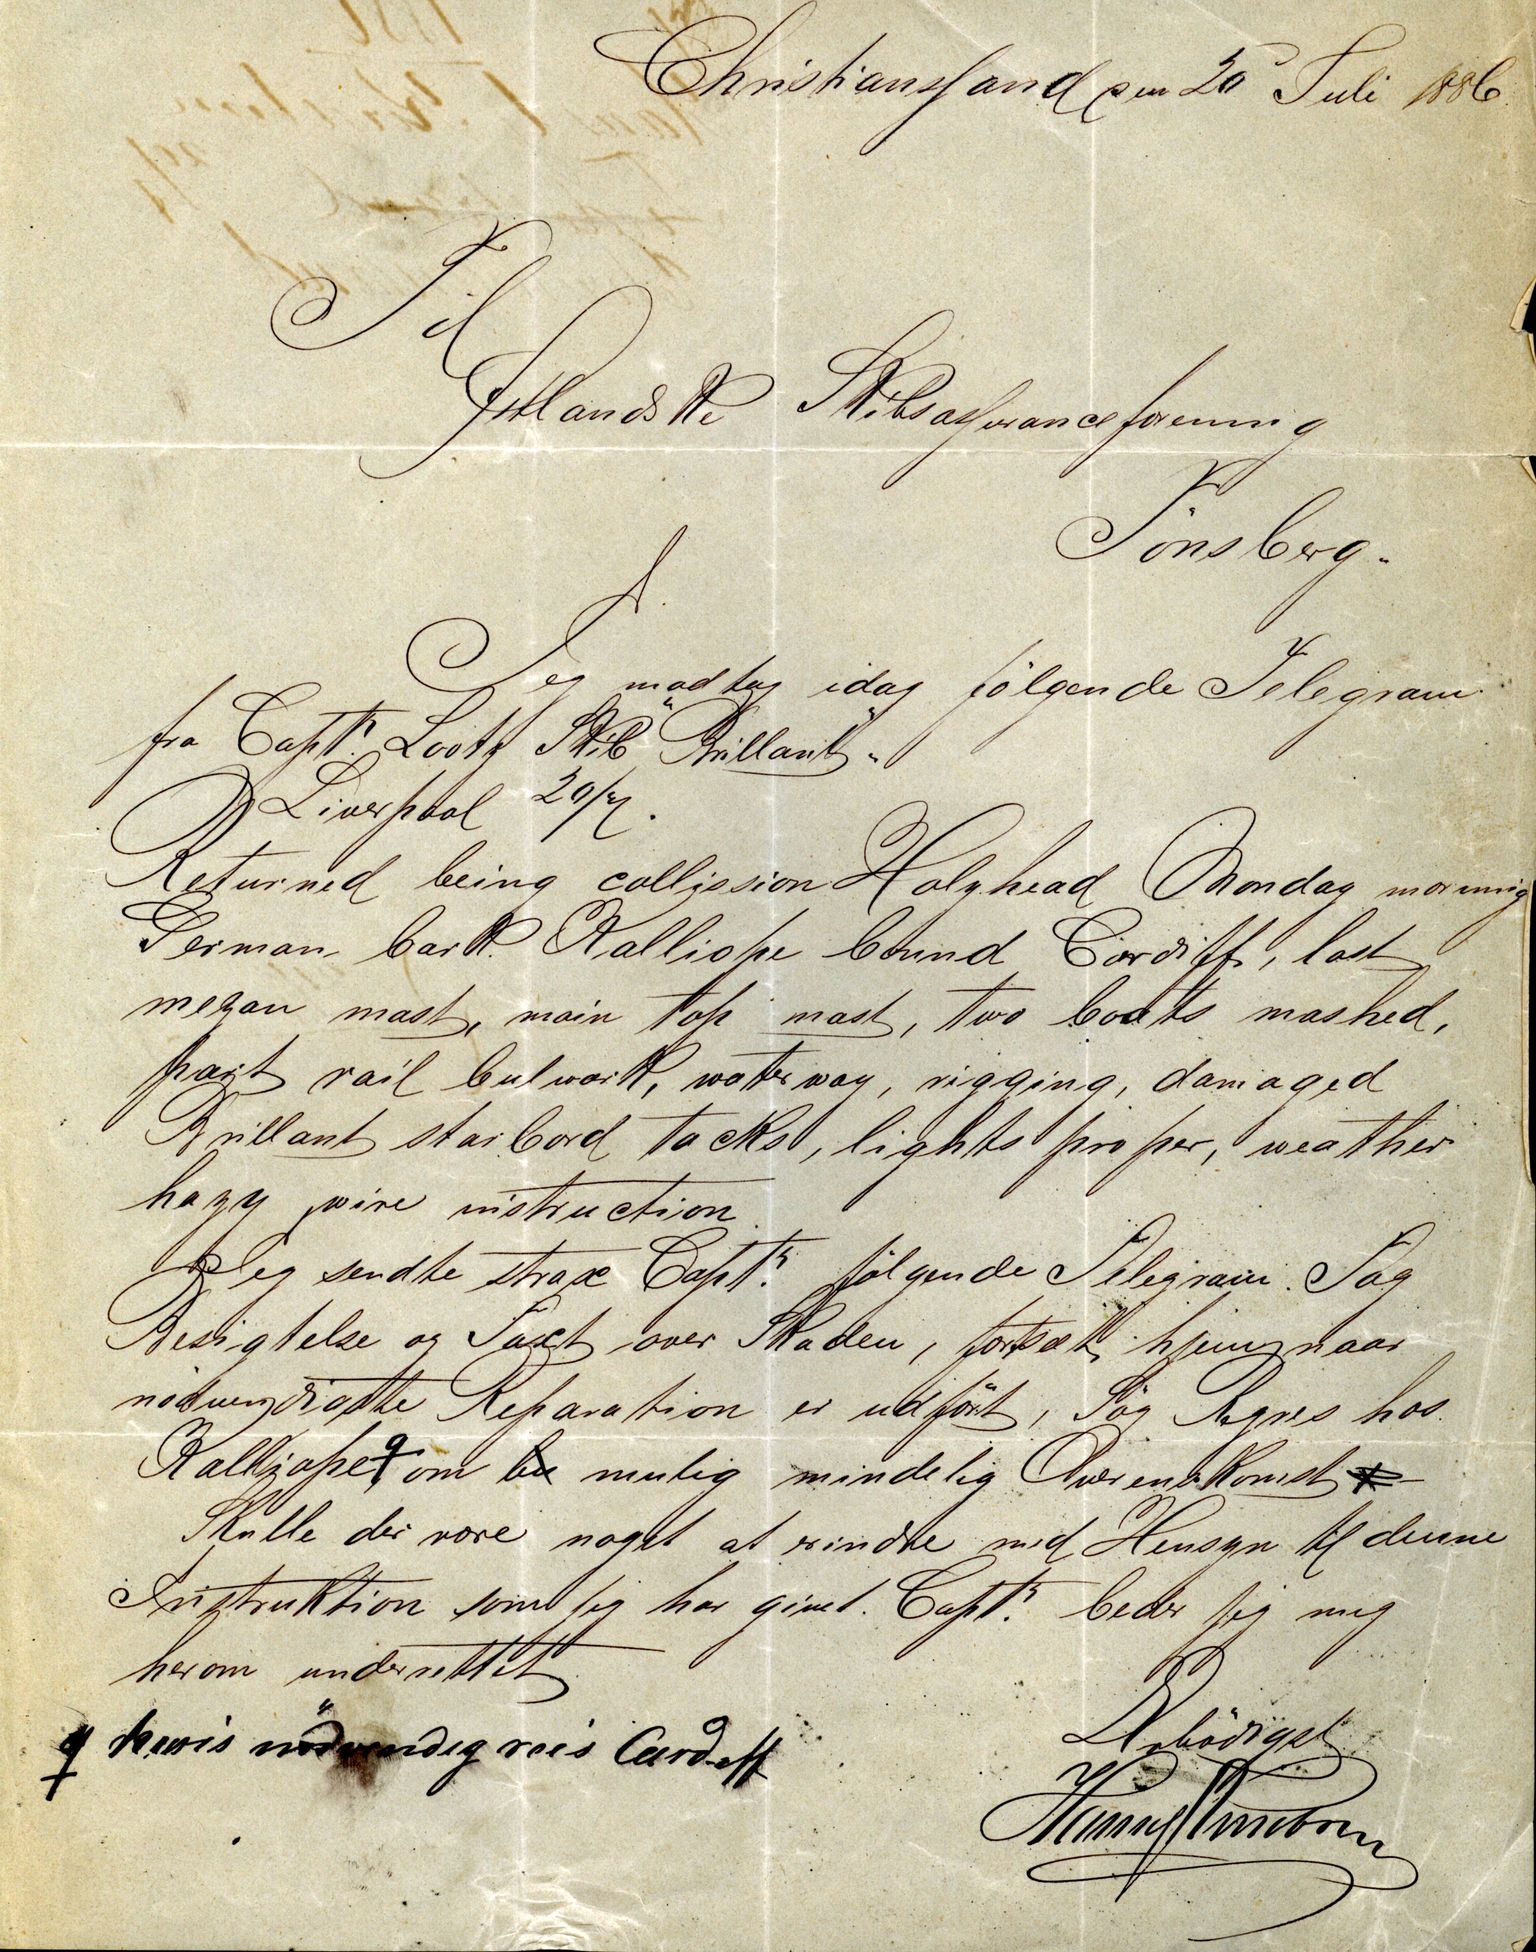 Christianssand den 20 Juli 1886
Til
Jydlandske Skibsassuranceforening
Tönsberg.
P.
Jeg modtog idag følgende Telegram
fra Capt. Lootz Skib "Brillant".
Liverpool 20/7.
Returned being collission Holyhead Monday morning
German bark Kalliope bound Cardiff, lost
mezan mast, main top mast, two boats mashed,
part rail bulwark, waterway, rigging, damaged
Brillant starbord tacks, lights proper, weather
hazy wire instruction
Jeg sendte strax Capt. følgende Telegram. Tag
Besigtelse og Taxt over Skaden, fortsæt hjem naar
nödvendigste Reparation er udfört, Søg Regres hos
Kalliope om mulig mindelig Overenskomst
Skulle der være noget at erindre med Hensyn til denne
Instruktion som jeg har givet Capt. beder jeg mig
herom underrettet
Ærbödigst
hvis nödvendig reis Cardiff